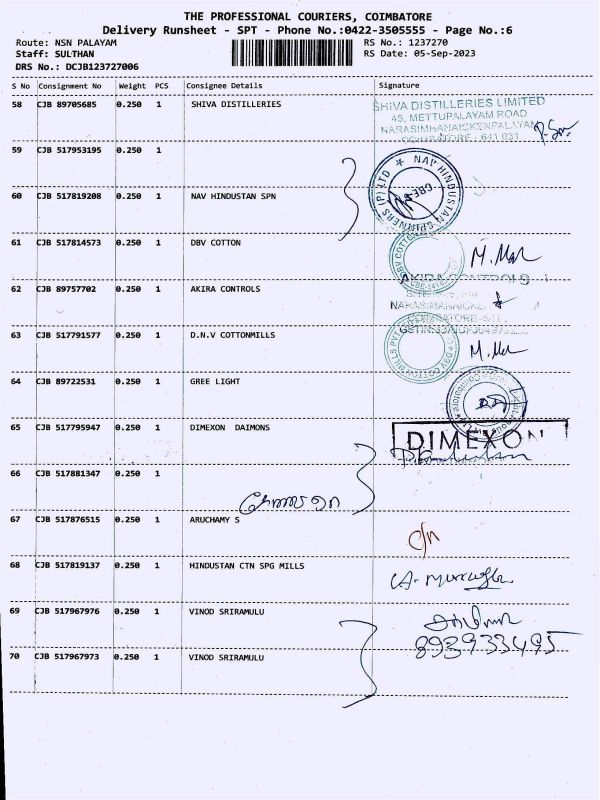 THE PROFESSIONAL COURIERS, COIMBATORE
Delivery Runsheet - SPT - Phone No.:0422-3505555 - Page No.:6
Route: NSN PALAYAM RS No.: 1237270
Staff: SULTHAN RS Date: 05-Sep-2023
DRS No.: DCJB123727006
S No Consignment No Weight PCS Consignee Details Signature
58 CJB 89705685 0.250 1 SHIVA DISTILLERIES
SHIVA DISTILLERIES LIMITED
45, METTUPALAYAM ROAD
NARASIMHANAICKENPALAYAM
COIMBATORE - 641 031
59 CJB 517953195 0.250 1
60 CJB 517819208 0.250 1 NAV HINDUSTAN SPN
NAV HINDUSTAN SPINNERS (P) LTD
61 CJB 517814573 0.250 1 DBV COTTON
DBV COTTON
62 CJB 89757702 0.250 1 AKIRA CONTROLS
AKIRA CONTROLS
63 CJB 517791577 0.250 1 D.N.V COTTONMILLS
DBV COTTON MILLS PVT
64 CJB 89722531 0.250 1 GREE LIGHT
65 CJB 517795947 0.250 1 DIMEXON DAIMONS
DIMEXON
66 CJB 517881347 0.250 1
67 CJB 517876515 0.250 1 ARUCHAMY S
68 CJB 517819137 0.250 1 HINDUSTAN CTN SPG MILLS
69 CJB 517967976 0.250 1 VINOD SRIRAMULU
8939933495
70 CJB 517967973 0.250 1 VINOD SRIRAMULU